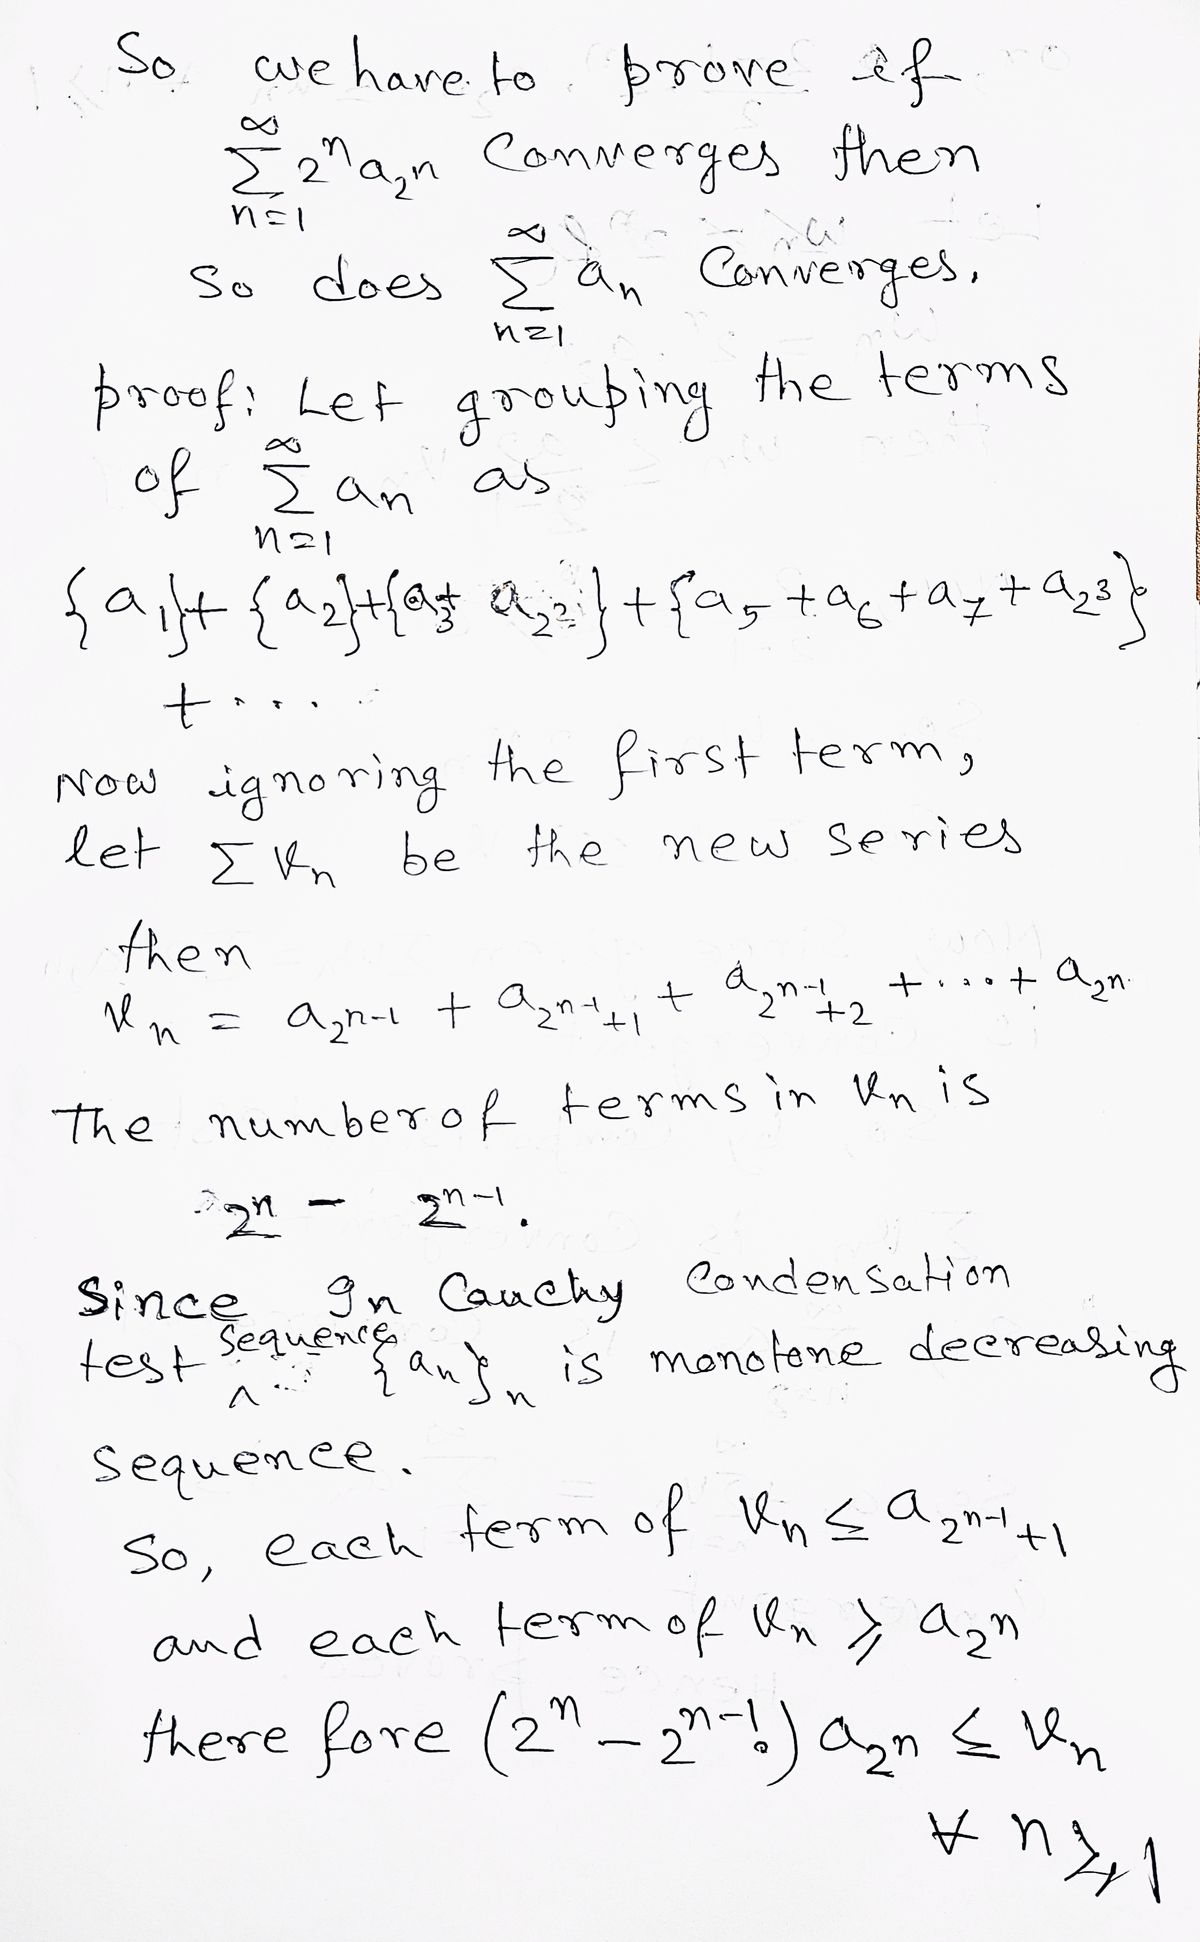 So we have to prove if
∞
Σ 2ⁿ a₂ⁿ Converges then
n=1
∞
so does Σ aₙ Converges.
n=1
proof: Let grouping the terms
∞
of Σ aₙ as
n=1
{a₁}+{a₂}+{a₃+ a₂²}+{a₅+a₆+a₇+a₂³}
+ ....
Now ignoring the first term,
let Σ vₙ be the new series
then
vₙ = a_{2^{n-1}} + a_{2^{n-1}+1} + a_{2^{n-1}+2} + ... + a_{2^n}
The number of terms in vₙ is
2ⁿ - 2ⁿ⁻¹.
Since In Cauchy Condensation
test sequence {aₙ}ₙ is monotone decreasing
sequence.
So, each term of vₙ ≤ a_{2^{n-1}+1}
and each term of vₙ ≥ a_{2^n}
there fore (2ⁿ - 2ⁿ⁻¹) a_{2^n} ≤ vₙ
∀ n ≥ 1